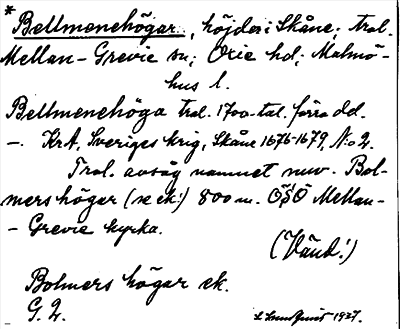 * Bellmenehögar, höjder i Skåne; trol.
Mellan-Grevie sn; Oxie hd; Malmö-
hus l.
Bellmenehöga trol. 1700-tal. förra dd.
–. KrA, Sveriges krig, Skåne 1675-1679, No 2.
Trol. avsåg namnet nuv. Bol-
mers högar (se ek.) 800 m. ÖSÖ Mellan-
- Grevie kyrka.
(Vänd!)
Bolmers högar ek.
G. 2.
1927.